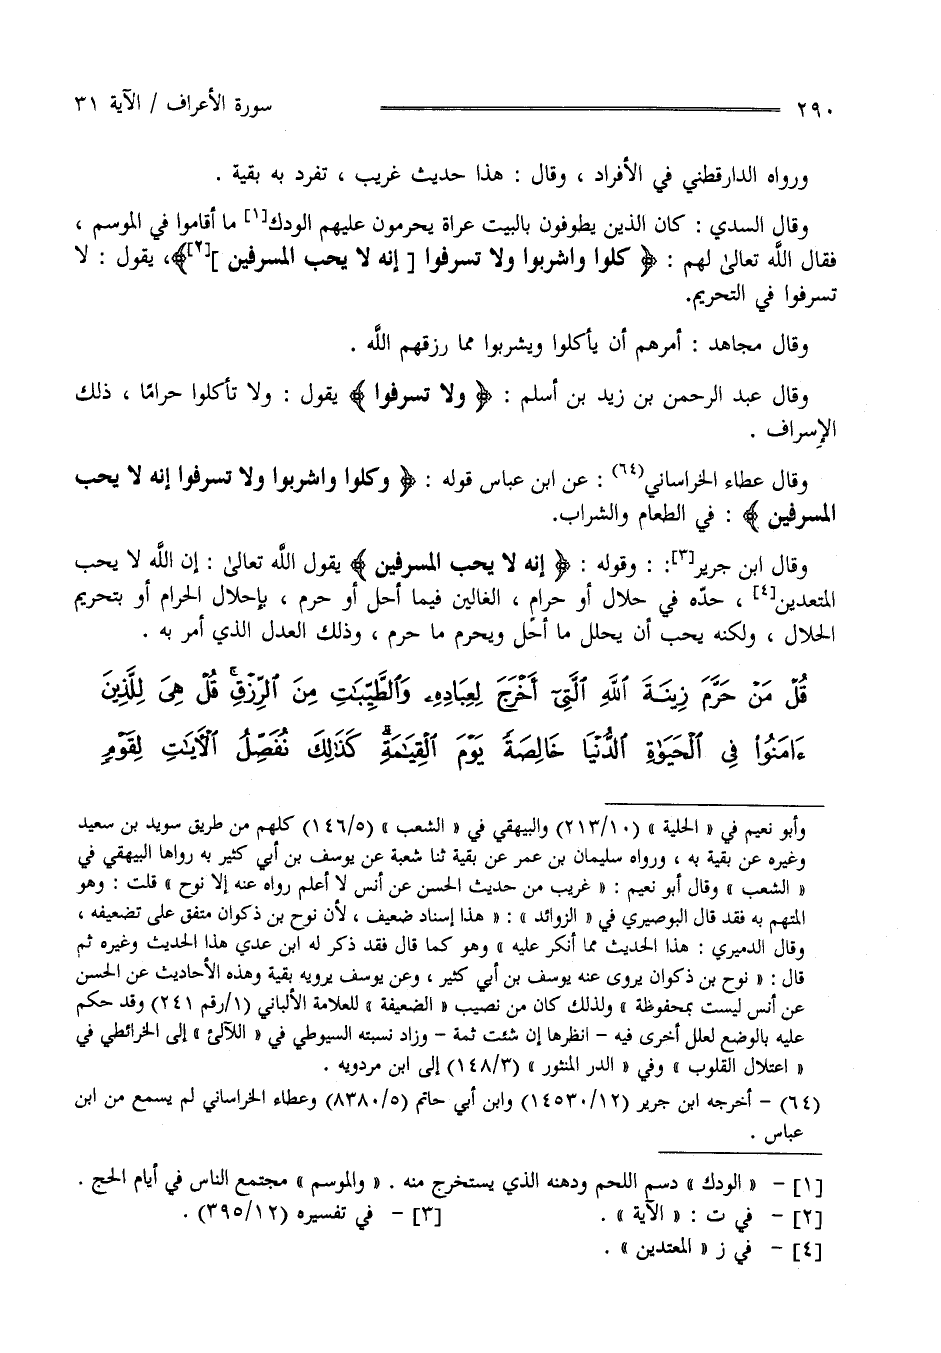 ٢٩٠ سورة الأعراف / الآية ٣١
ورواه الدارقطني في الأفراد ، وقال : هذا حديث غريب ، تفرد به بقية .
وقال السدي : كان الذين يطوفون بالبيت عراة يحرمون عليهم الودك[١] ما أقاموا في الموسم ،
فقال اللَّه تعالىٰ لهم : ﴿ كلوا واشربوا ولا تسرفوا [ إنه لا يحب المسرفين ][٢]﴾، يقول : لا
تسرفوا في التحريم.
وقال مجاهد : أمرهم أن يأكلوا ويشربوا مما رزقهم اللَّه .
وقال عبد الرحمن بن زيد بن أسلم : ﴿ ولا تسرفوا ﴾ يقول : ولا تأكلوا حرامًا ، ذلك
الإسراف .
وقال عطاء الخراساني(٦٤) : عن ابن عباس قوله : ﴿ وكلوا واشربوا ولا تسرفوا إنه لا يحب
المسرفين ﴾ : في الطعام والشراب.
وقال ابن جرير[٣]: : وقوله : ﴿ إنه لا يحب المسرفين ﴾ يقول اللَّه تعالىٰ : إن اللَّه لا يحب
المتعدين[٤] ، حدّه في حلال أو حرامٍ ، الغالين فيما أحل أو حرم ، بإحلال الحرام أو بتحريم
الحلال ، ولكنه يحب أن يحلل ما أحل ويحرم ما حرم ، وذلك العدل الذي أمر به .
قُلْ مَنْ حَرَّمَ زِينَةَ ٱللَّهِ ٱلَّتِىٓ أَخْرَجَ لِعِبَادِهِۦ وَٱلطَّيِّبَٰتِ مِنَ ٱلرِّزْقِۚ قُلْ هِىَ لِلَّذِينَ
ءَامَنُوا۟ فِى ٱلْحَيَوٰةِ ٱلدُّنْيَا خَالِصَةً يَوْمَ ٱلْقِيَٰمَةِۗ كَذَٰلِكَ نُفَصِّلُ ٱلْءَايَٰتِ لِقَوْمٍ
وأبو نعيم في « الحلية » (٢١٣/١٠) والبيهقي في « الشعب » (١٤٦/٥) كلهم من طريق سويد بن سعيد
وغيره عن بقية به ، ورواه سليمان بن عمر عن بقية ثنا شعبة عن يوسف بن أبي كثير به رواها البيهقي في
« الشعب » وقال أبو نعيم : « غريب من حديث الحسن عن أنس لا أعلم رواه عنه إلا نوح » قلت : وهو
المتهم به فقد قال البوصيري في « الزوائد » : « هذا إسناد ضعيف ، لأن نوح بن ذكوان متفق على تضعيفه ،
وقال الدميري : هذا الحديث مما أنكر عليه » وهو كما قال فقد ذكر له ابن عدي هذا الحديث وغيره ثم
قال : « نوح بن ذكوان يروى عنه يوسف بن أبي كثير ، وعن يوسف يرويه بقية وهذه الأحاديث عن الحسن
عن أنس ليست بمحفوظة » ولذلك كان من نصيب « الضعيفة » للعلامة الألباني (١/رقم ٢٤١) وقد حكم
عليه بالوضع لعلل أخرى فيه – انظرها إن شئت ثمة – وزاد نسبته السيوطي في « اللآلئ » إلى الخرائطي في
« اعتلال القلوب » وفي « الدر المنثور » (١٤٨/٣) إلى ابن مردويه .
(٦٤) – أخرجه ابن جرير (١٤٥٣٠/١٢) وابن أبي حاتم (٨٣٨٠/٥) وعطاء الخراساني لم يسمع من ابن
عباس .
[١] – « الودك » دسم اللحم ودهنه الذي يستخرج منه . « والموسم » مجتمع الناس في أيام الحج .
[٢] – في ت : « الآية » . [٣] – في تفسيره (٣٩٥/١٢) .
[٤] – في ز « المعتدين » .